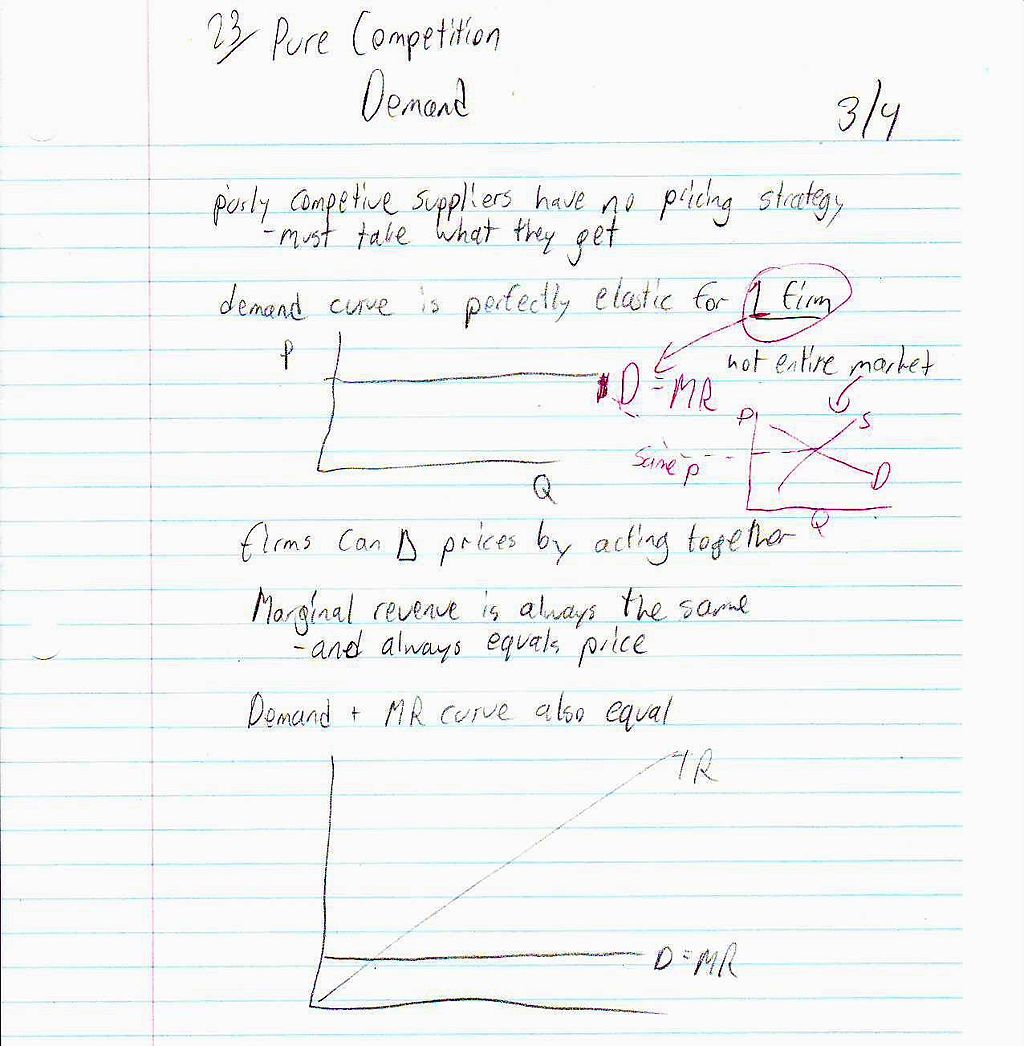 23/ Pure Competition
Demand
3/4
purly competive suppliers have no pricing strategy
-must take what they get
demand curve is perfectly elastic for 1 firm
not entire market
P
D = MR
Q
P
S
same p
D
Q
firms can Δ prices by acting together
Marginal revenue is always the same
-and always equals price
Demand + MR curve also equal
TR
D = MR